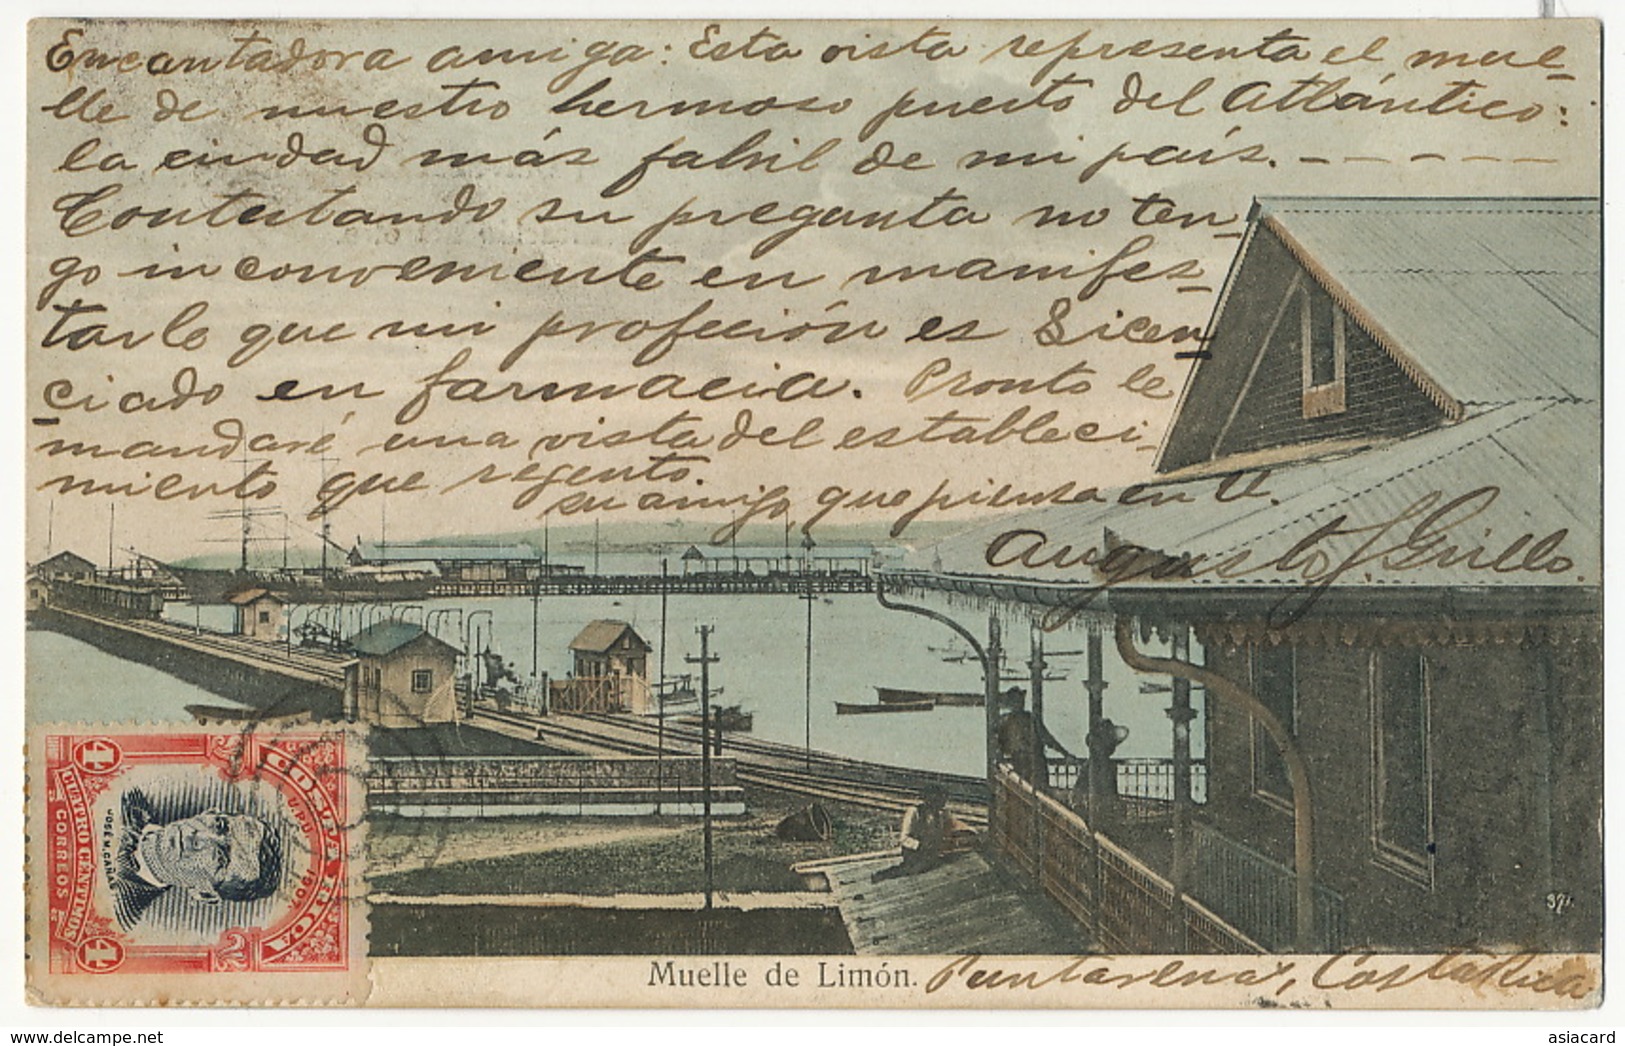 Encantadora amiga: Esta vista representa el mue-
lle de nuestro hermoso puerto del Atlántico:
la ciudad más fabril de mi país. - - - - - -
Contestando su pregunta no ten-
go inconveniente en manifes-
tarle que mi profección es Licen-
ciado en farmacia. Pronto le
mandaré una vista del estableci-
miento que regento.
su amigo, que piensa en U.
Augusto J. Grillo.
COSTA RICA
U.P.U. 1901
JOSE M. CAÑAS
CUATRO CENTIMOS
CORREOS
4
4
371.
Muelle de Limón. Puntarenas, Costa Rica
www.delcampe.net
asiacard